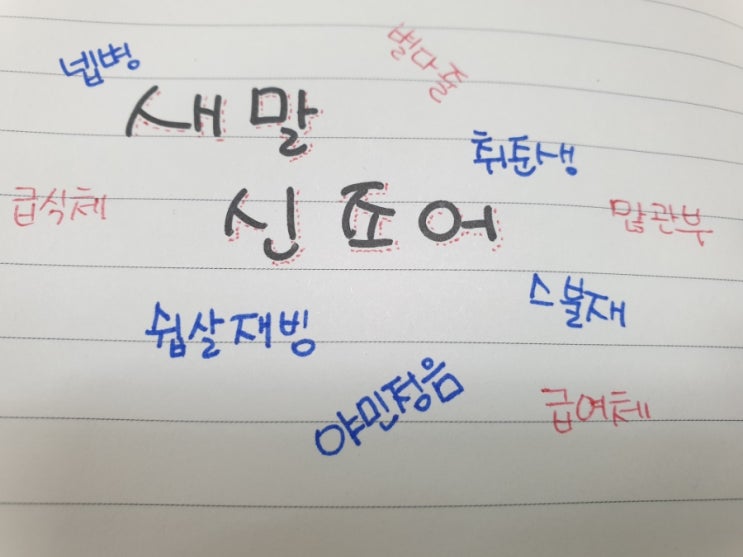 넵병
별다줄
새말
취준생
급식체
신조어
많관부
스불재
쉽살재빙
야민정음
급여체